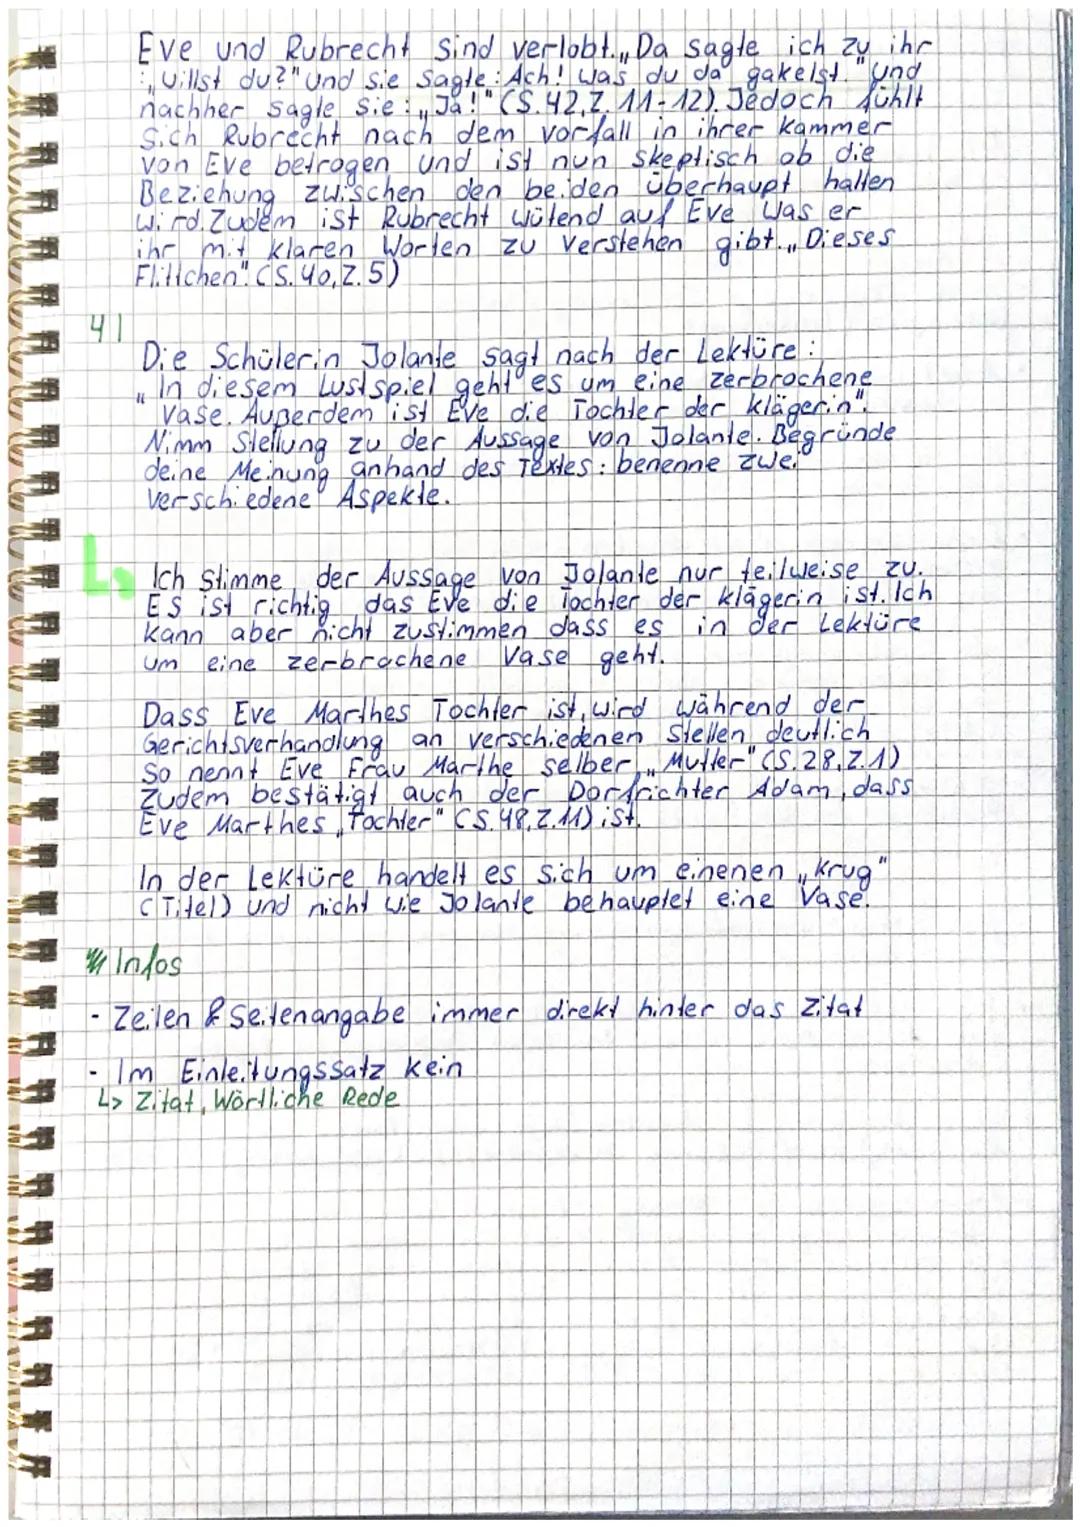 Eve und Rubrecht sind verlobt. „Da sagte ich zu ihr
: „willst du?" und sie sagte: Ach! Was du da gakelst." Und
nachher sagte sie: „Ja!" (S.42,Z.11-12). Jedoch fühlt
sich Rubrecht nach dem vorfall in ihrer Kammer
von Eve betrogen und ist nun skeptisch ob die
Beziehung zwischen den beiden überhaupt halten
wird. Zudem ist Rubrecht wütend auf Eve was er
ihr mit klaren Worten zu verstehen gibt. „Dieses
Flittchen". (S.40,Z.5)
4)
Die Schülerin Jolante sagt nach der Lektüre:
„In diesem Lustspiel geht es um eine zerbrochene
Vase. Außerdem ist Eve die Tochter der Klägerin".
Nimm Stellung zu der Aussage von Jolante. Begründe
deine Meinung anhand des Textes: benenne zwei
verschiedene Aspekte.
↳ Ich stimme der Aussage von Jolante nur teilweise zu.
Es ist richtig das Eve die Tochter der Klägerin ist. Ich
kann aber nicht zustimmen dass es in der Lektüre
um eine zerbrochene Vase geht.
Dass Eve Marthes Tochter ist, wird während der
Gerichtsverhandlung an verschiedenen Stellen deutlich
So nennt Eve Frau Marthe selber „Mutter" (S.28,Z.1)
Zudem bestätigt auch der Dorfrichter Adam, dass
Eve Marthes „Tochter" (S.48,Z.11) ist.
In der Lektüre handelt es sich um einenen „Krug"
(Titel) und nicht wie Jolante behauptet eine Vase.
Infos
- Zeilen & Seitenangabe immer direkt hinter das Zitat
- Im Einleitungssatz kein
↳ Zitat, Wörtliche Rede